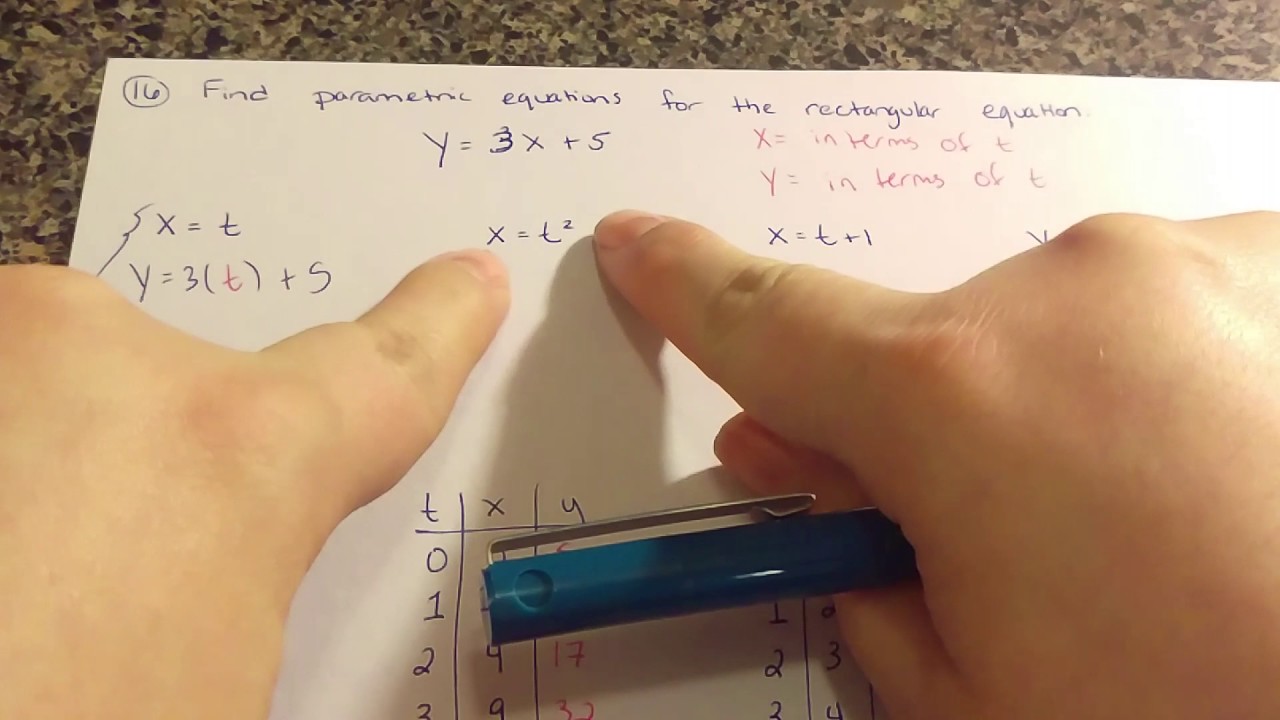 16 Find parametric equations for the rectangular equation.
y = 3x + 5
x = in terms of t
y = in terms of t
x = t
y = 3(t) + 5
x = t²
x = t + 1
t x y
0
1
2 4 17
3 9 32
1 2
2 3
3 4